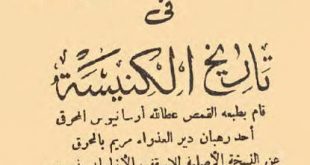 فى
تاريخ الكنيسة
قام بطبعه القمص عطا الله أرسانيوس المحرقى
أحد رهبان دير العذراء مريم بالمحرق
عن النسخة الأصلية